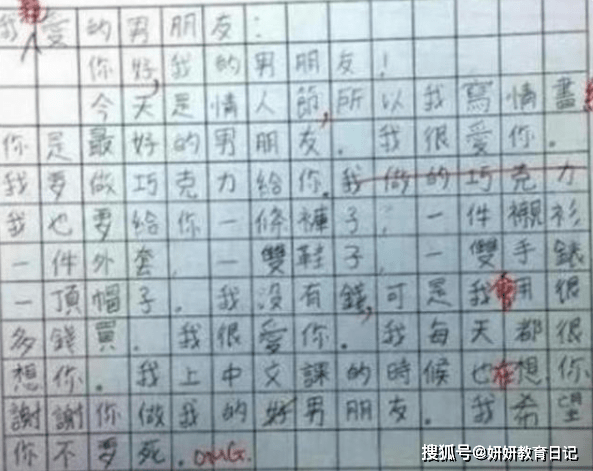 我親愛的男朋友：
你好，我的男朋友！
今天是情人節，所以我寫情書給
你是最好的男朋友。我很愛你。
我要做巧克力給你。我做的巧克力
我也要給你一條褲子，一件襯衫
一件外套，一雙鞋子，一雙手錶
一頂帽子。我没有錢，可是我會用很
多錢買。我很愛你。我每天都很
想你。我上中文課的時候也在想你
謝謝你做我的好男朋友。我希望
你不要死。OMG.
搜狐号@妍妍教育日记